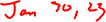 Jan 30, 23